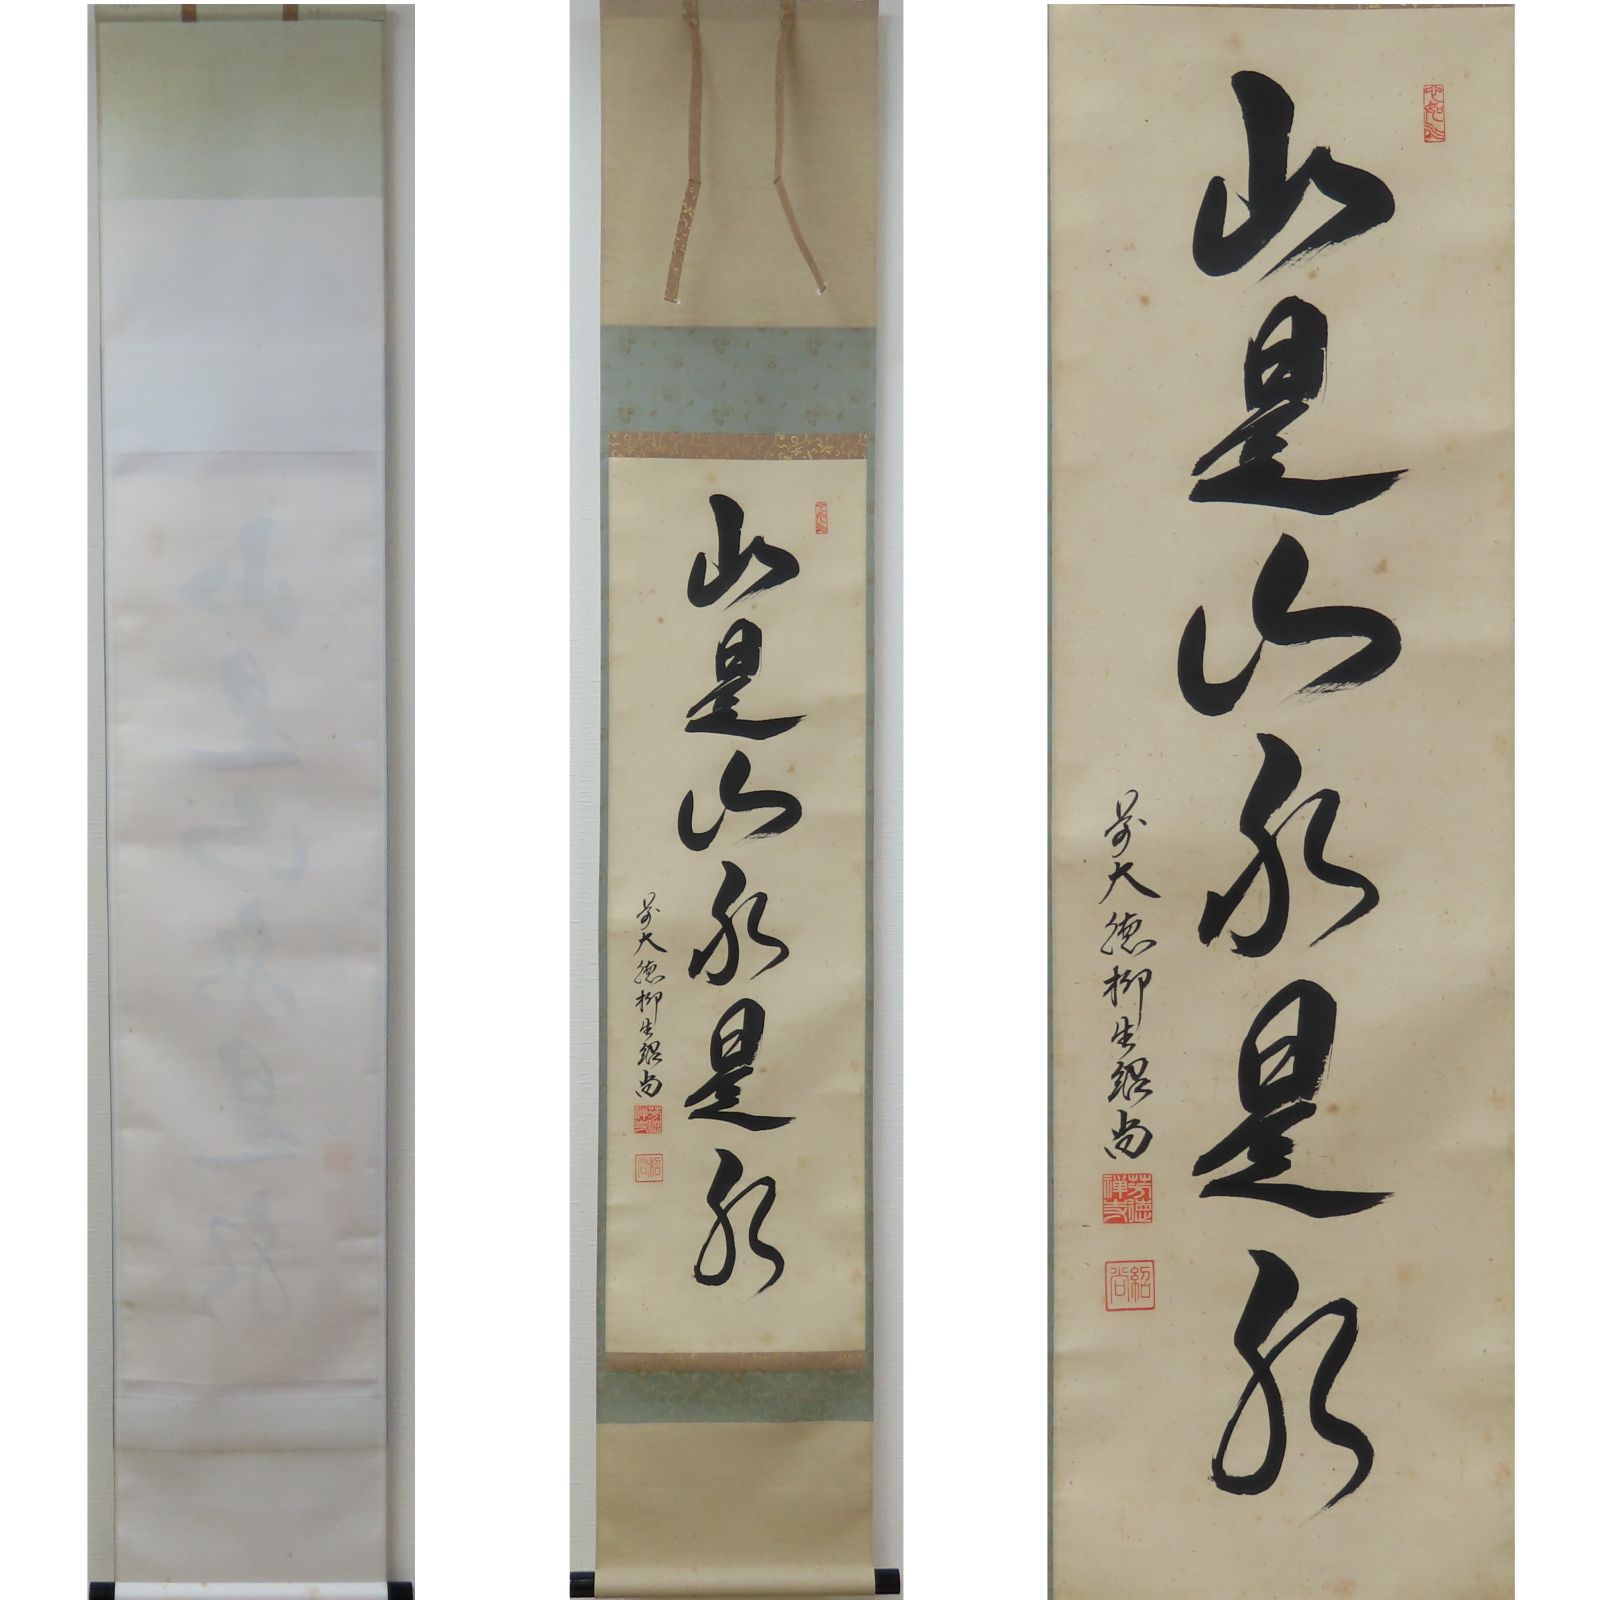 山是山水是水
前大徳柳生紹尚
芳徳禅寺
紹尚
山是山水是水
前大徳柳生紹尚
芳徳禅寺
紹尚